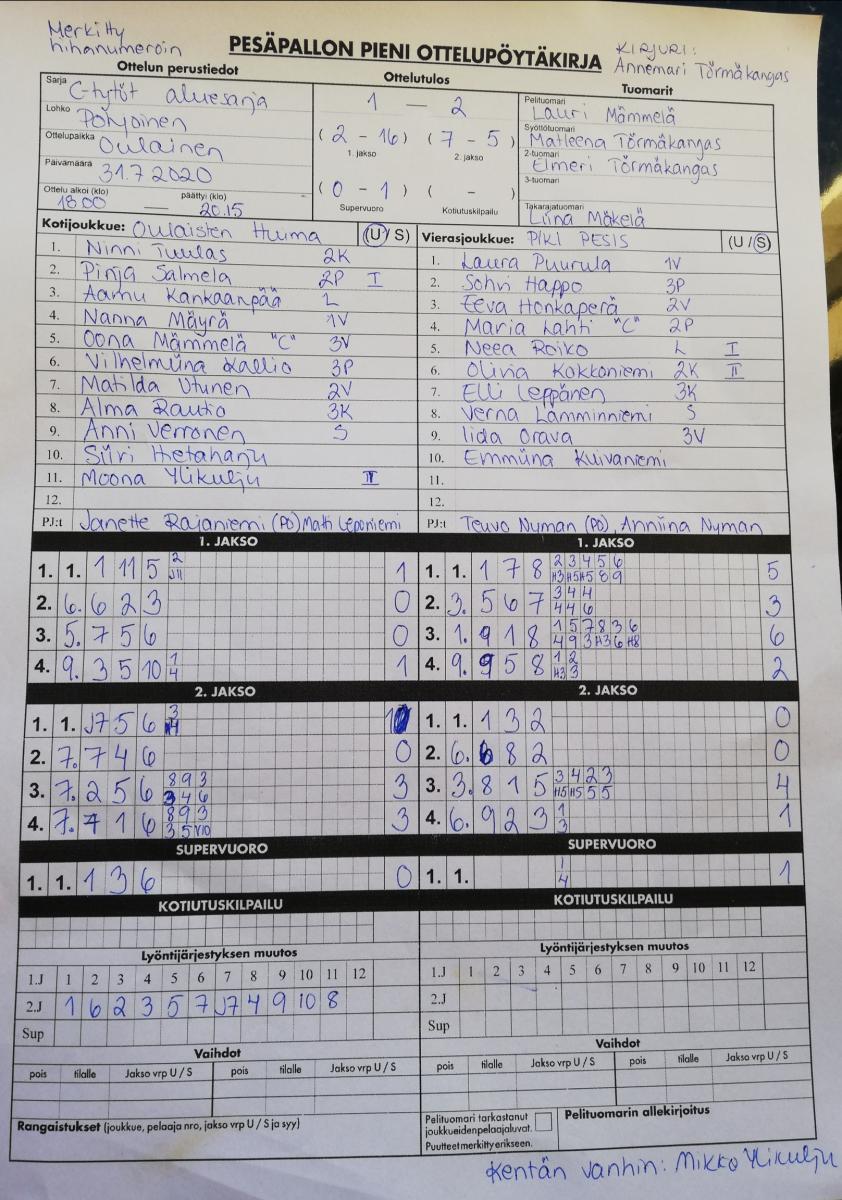 Merkitty hihanumeroin
PESÄPALLON PIENI OTTELUPÖYTÄKIRJA
KIRJURI: Annemari Törmäkangas
Ottelun perustiedot
Ottelutulos
Tuomarit
Sarja C-tytöt aluesarja
Lohko Pohjoinen
Ottelupaikka Oulainen
Päivämäärä 31.7 2020
Ottelu alkoi (klo) 18 00 — päättyi (klo) 20.15
1 — 2
(2 - 16) (7 - 5)
1. jakso 2. jakso
(0 - 1) ( - )
Supervuoro Kotiutuskilpailu
Pelituomari Lauri Mämmelä
Syöttötuomari Matleena Törmäkangas
2-tuomari Elmeri Törmäkangas
3-tuomari
Takarajatuomari Liina Mäkelä
Kotijoukkue: Oulaisten Huima (U / S)
1. Ninni Tuulas 2K
2. Pinja Salmela 2P I
3. Aamu Kankaanpää L
4. Nanna Mäyrä 1V
5. Oona Mämmelä "C" 3V
6. Vilhelmiina Kallio 3P
7. Matilda Utunen 2V
8. Alma Rautio 3K
9. Anni Verronen S
10. Siiri Hietaharju
11. Moona Ylikulju II
12.
PJ:t Janette Rajaniemi (PO) Matti Leponiemi
Vierasjoukkue: PIKI PESIS (U / S)
1. Laura Puurula 1V
2. Sohvi Happo 3P
3. Eeva Honkaperä 2V
4. Maria Lahti "C" 2P
5. Neea Roiko L I
6. Olivia Kokkoniemi 2K II
7. Elli Leppänen 3K
8. Verna Lämminniemi S
9. Iida Orava 3V
10. Emmiina Kuivaniemi
11.
12.
PJ:t Teuvo Nyman (PO), Anniina Nyman
1. JAKSO
1. 1. 1 11 5 2 J11 1
2. 6. 6 2 3 0
3. 5. 7 5 6 0
4. 9. 3 5 10 1 4 1
2. JAKSO
1. 1. J7 5 6 3 4 1
2. 7. 7 4 6 0
3. 7. 2 5 6 8 9 3 3 4 6 3
4. 7. 7 1 6 8 9 3 3 5 V10 3
SUPERVUORO
1. 1. 1 3 6 0
KOTIUTUSKILPAILU
1. JAKSO
1. 1. 1 7 8 2 3 4 5 6 H3 H5 H5 8 9 5
2. 3. 5 6 7 3 4 4 4 4 6 3
3. 1. 9 1 8 1 5 7 8 3 6 4 9 3 H3 6 H8 6
4. 9. 9 5 8 1 2 H3 3 2
2. JAKSO
1. 1. 1 3 2 0
2. 6. 6 8 2 0
3. 3. 8 1 5 3 4 2 3 H5 H5 5 5 4
4. 6. 9 2 3 1 3 1
SUPERVUORO
1. 1. 1 4 1
KOTIUTUSKILPAILU
Lyöntijärjestyksen muutos
1.J 1 2 3 4 5 6 7 8 9 10 11 12
2.J 1 6 2 3 5 7 J7 4 9 10 8
Sup
Vaihdot
pois tilalle Jakso vrp U / S pois tilalle Jakso vrp U / S
Rangaistukset (joukkue, pelaaja nro, jakso vrp U / S ja syy)
Lyöntijärjestyksen muutos
1.J 1 2 3 4 5 6 7 8 9 10 11 12
2.J
Sup
Vaihdot
pois tilalle Jakso vrp U / S pois tilalle Jakso vrp U / S
Pelituomari tarkastanut
joukkueidenpelaajaluvat.
Puutteet merkitty erikseen.
Pelituomarin allekirjoitus
Kentän vanhin: Mikko Ylikulju